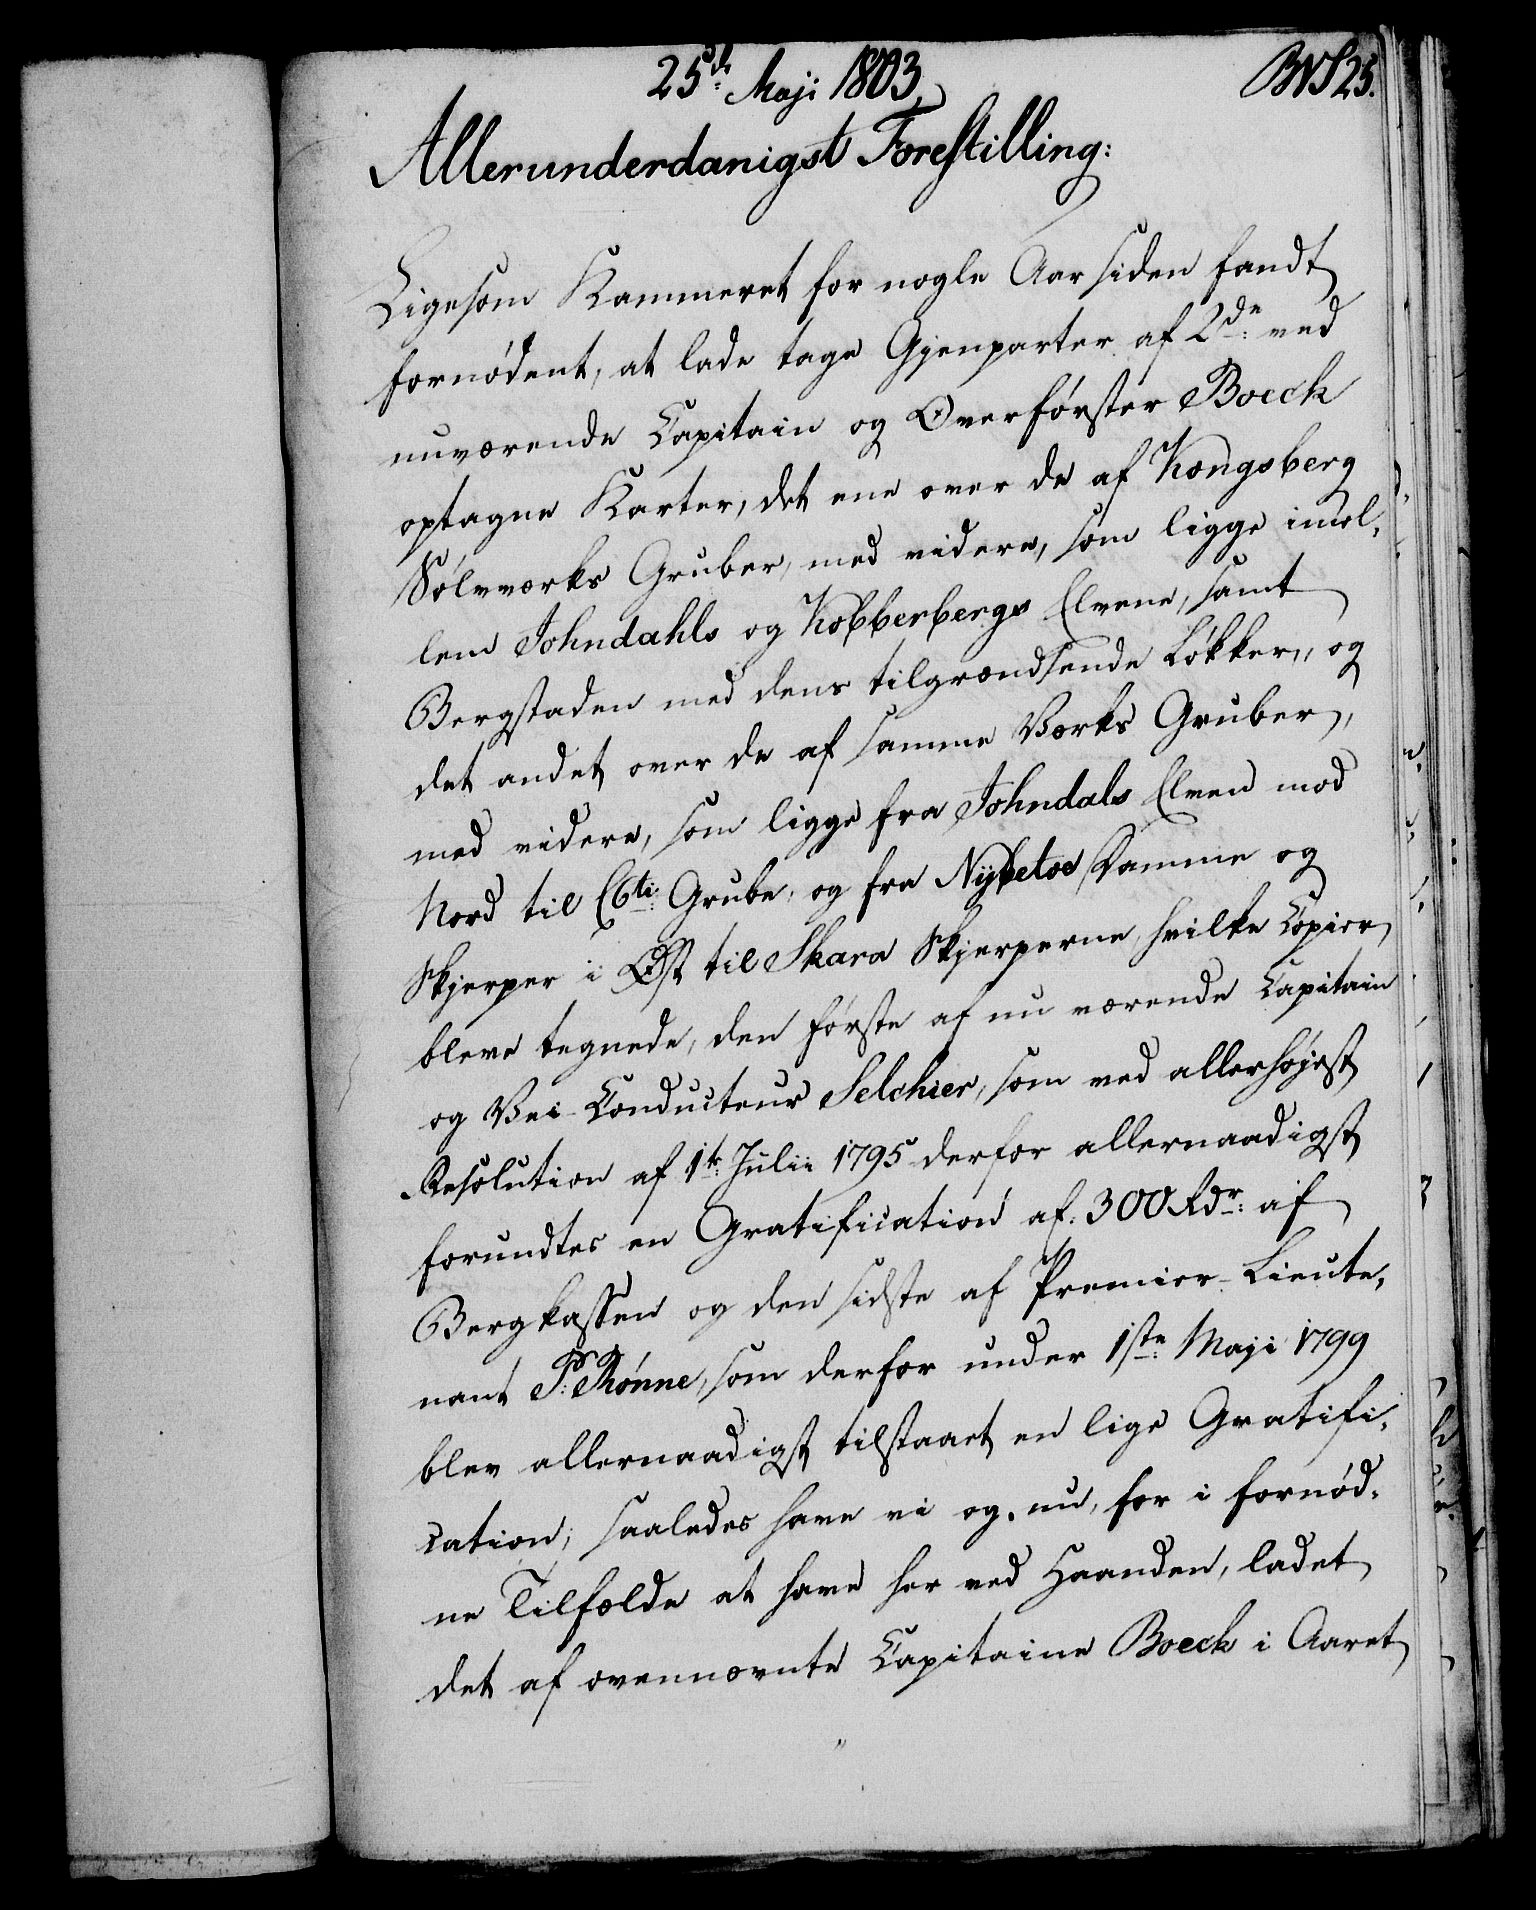 25de Maji 1803
BNS 25.
Allerunderdanigst Forestilling:
Ligesom Kammeret for nogle Aar siden fandt
fornødent, at lade tage Gjenparter af 2de: ved
nuværende Capitain og Overførster Boeck
optagne Karter, det ene over de af Kongsberg
Sølvværks Gruber, med videre, som ligge imel,
lem Johndahls og Kobberbergs Elvene, samt
Bergstaden med dens tilgrændsende Løkker, og
det andet over de af samme Værks Gruber,
med videre, som ligge fra Johndals Elven mod
Nord til Grube, og fra Nybetoe Damme og
Skjerper i Øst til Skara Skjerperne, hvilke Copier
bleve tegnede, den første af nu værende Capitain
og Vei-Conducteur Selchier, som ved allerhøjest
Resolution af 1te Julii 1795 derfor allernaadigst
forundtes en Gratification af 300 Rdr: af
Bergkassen og den sidste af Premier-Lieute,
nant P: Rønne, som derfor under 1ste: Maji 1799
blev allernaadigst tilstaaet en lige Gratifi,
cation; saaledes have vi og nu, for i fornød,
ne Tilfælde at have her ved Haanden, ladet
det af ovennævnte Capitaine Boeck i Aaret